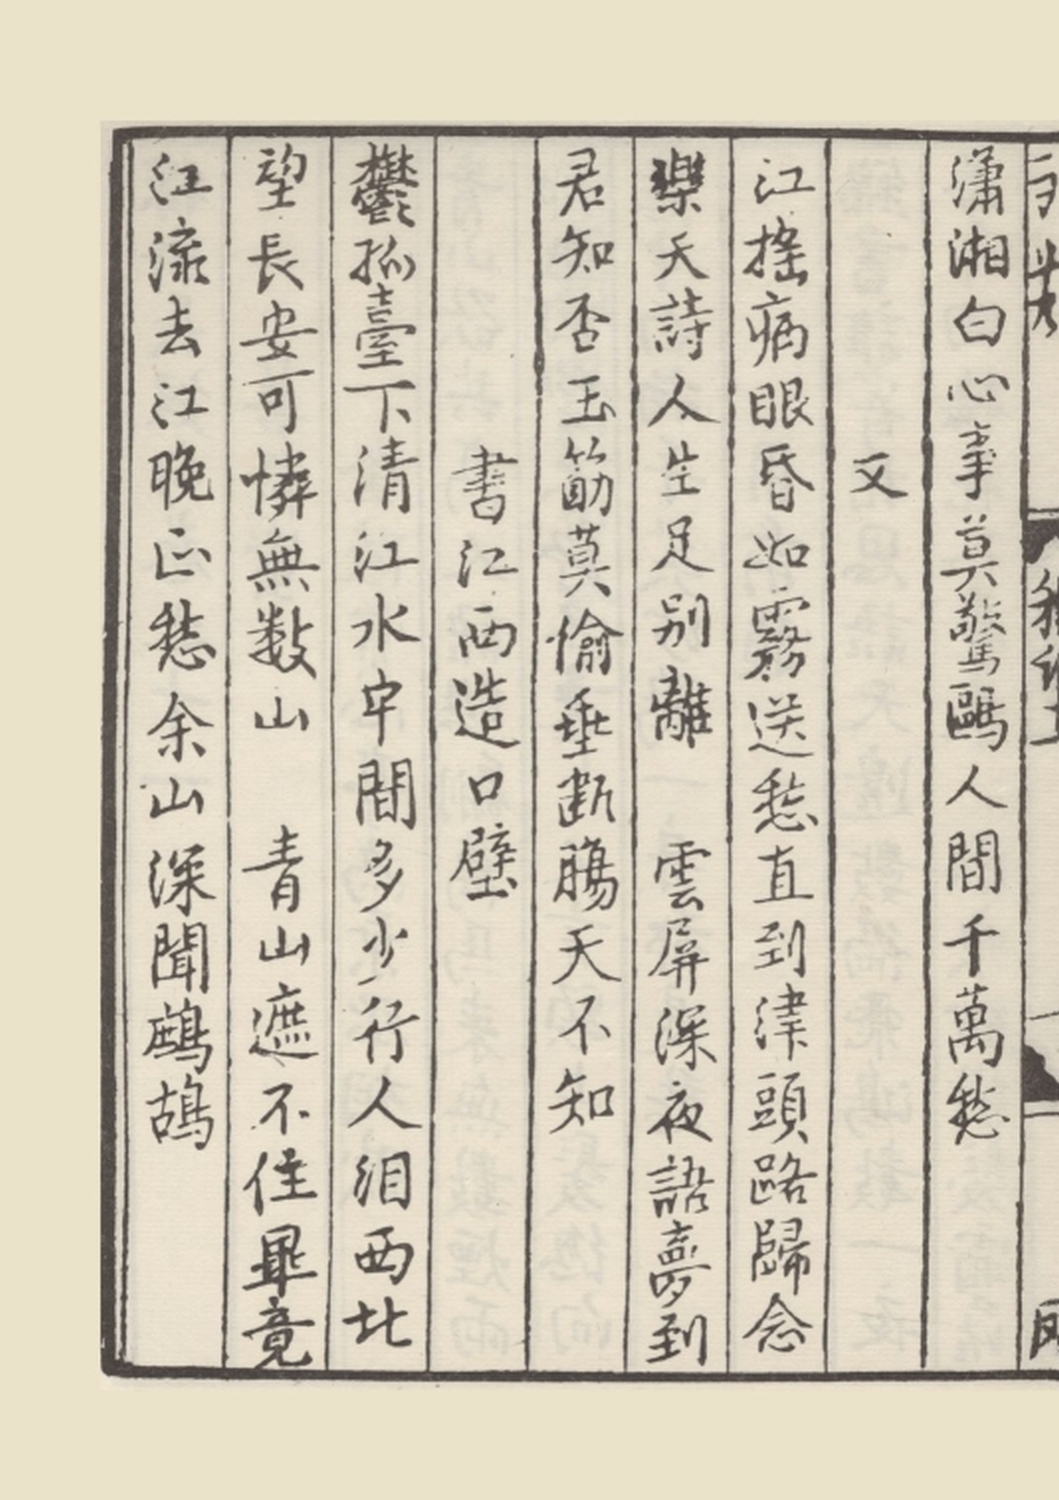 瀟湘白心事莫驚鷗人間千萬愁
又
江搖病眼昏如霧送愁直到津頭路歸念
樂天詩人生足別離　雲屏深夜語夢到
君知否玉筯莫偷垂斷腸天不知
書江西造口壁
鬱孤臺下清江水中間多少行人泪西北
望長安可憐無數山　青山遮不住畢竟
江流去江晚正愁余山深聞鷓鴣